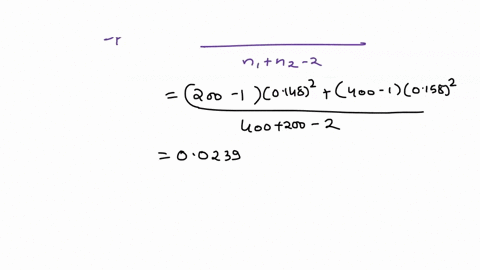 n₁+n₂-2
= (200-1)(0.148)²+(400-1)(0.158)²
400+200-2
= 0.0239